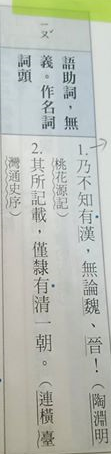 ㄧㄡˇ
語助詞，無
義。作名詞
詞頭
1.乃不知有漢，無論魏、晉！（陶淵明
桃花源記）
2.其所記載，僅隸有清一朝。（連橫臺
灣通史序）